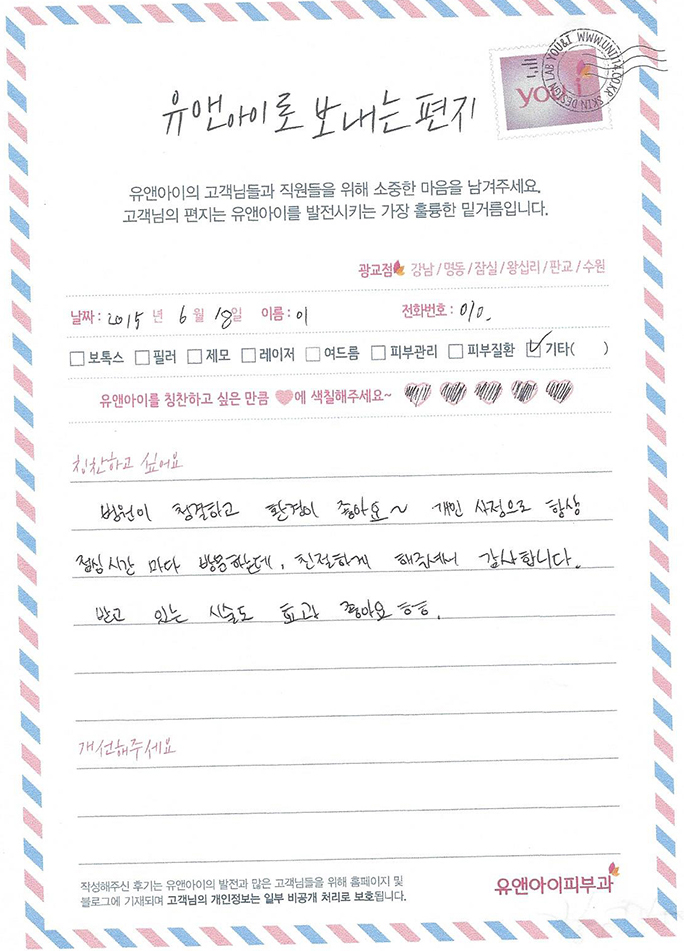 유앤아이로 보내는 편지
YOU&I WWW.UNI114.CO.KR SKIN DESIGN LAB
you i
유앤아이의 고객님들과 직원들을 위해 소중한 마음을 남겨주세요.
고객님의 편지는 유앤아이를 발전시키는 가장 훌륭한 밑거름입니다.
광교점 강남 / 명동 / 잠실 / 왕십리 / 판교 / 수원
날짜 : 2015 년 6 월 18일 이름 : 이 전화번호 : 010.
보톡스 필러 제모 레이저 여드름 피부관리 피부질환 기타( )
유앤아이를 칭찬하고 싶은 만큼 에 색칠해주세요~
칭찬하고 싶어요
병원이 청결하고 환경이 좋아요~ 개인 사정으로 항상
점심시간 마다 방문하는데, 친절하게 해주셔서 감사합니다.
받고 있는 시술도 효과 좋아요 ㅎㅎ.
개선해주세요
작성해주신 후기는 유앤아이의 발전과 많은 고객님들을 위해 홈페이지 및
블로그에 기재되며 고객님의 개인정보는 일부 비공개 처리로 보호됩니다.
유앤아이피부과